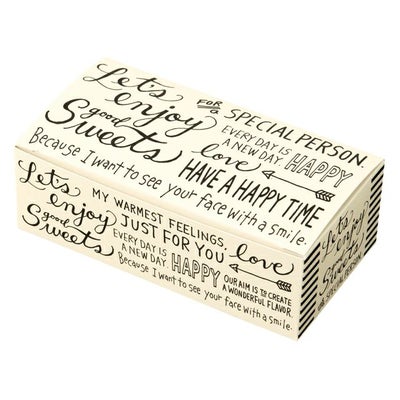 Let's
enjoy
good
Sweets
FOR a
SPECIAL PERSON.
EVERY DAY IS
A NEW DAY.
love
HAPPY
HAVE A HAPPY TIME
Because I want to see your face with a smile.
Let's
enjoy
good
Sweets
MY WARMEST FEELINGS,
JUST FOR YOU
love
EVERY DAY IS
A NEW DAY.
HAPPY
OUR AIM IS to CREATE
A WONDERFUL FLAVOR.
Because I want to see your face with a smile.
Let's
enjoy
good
Sweets
FOR a SPECIAL PERSON.